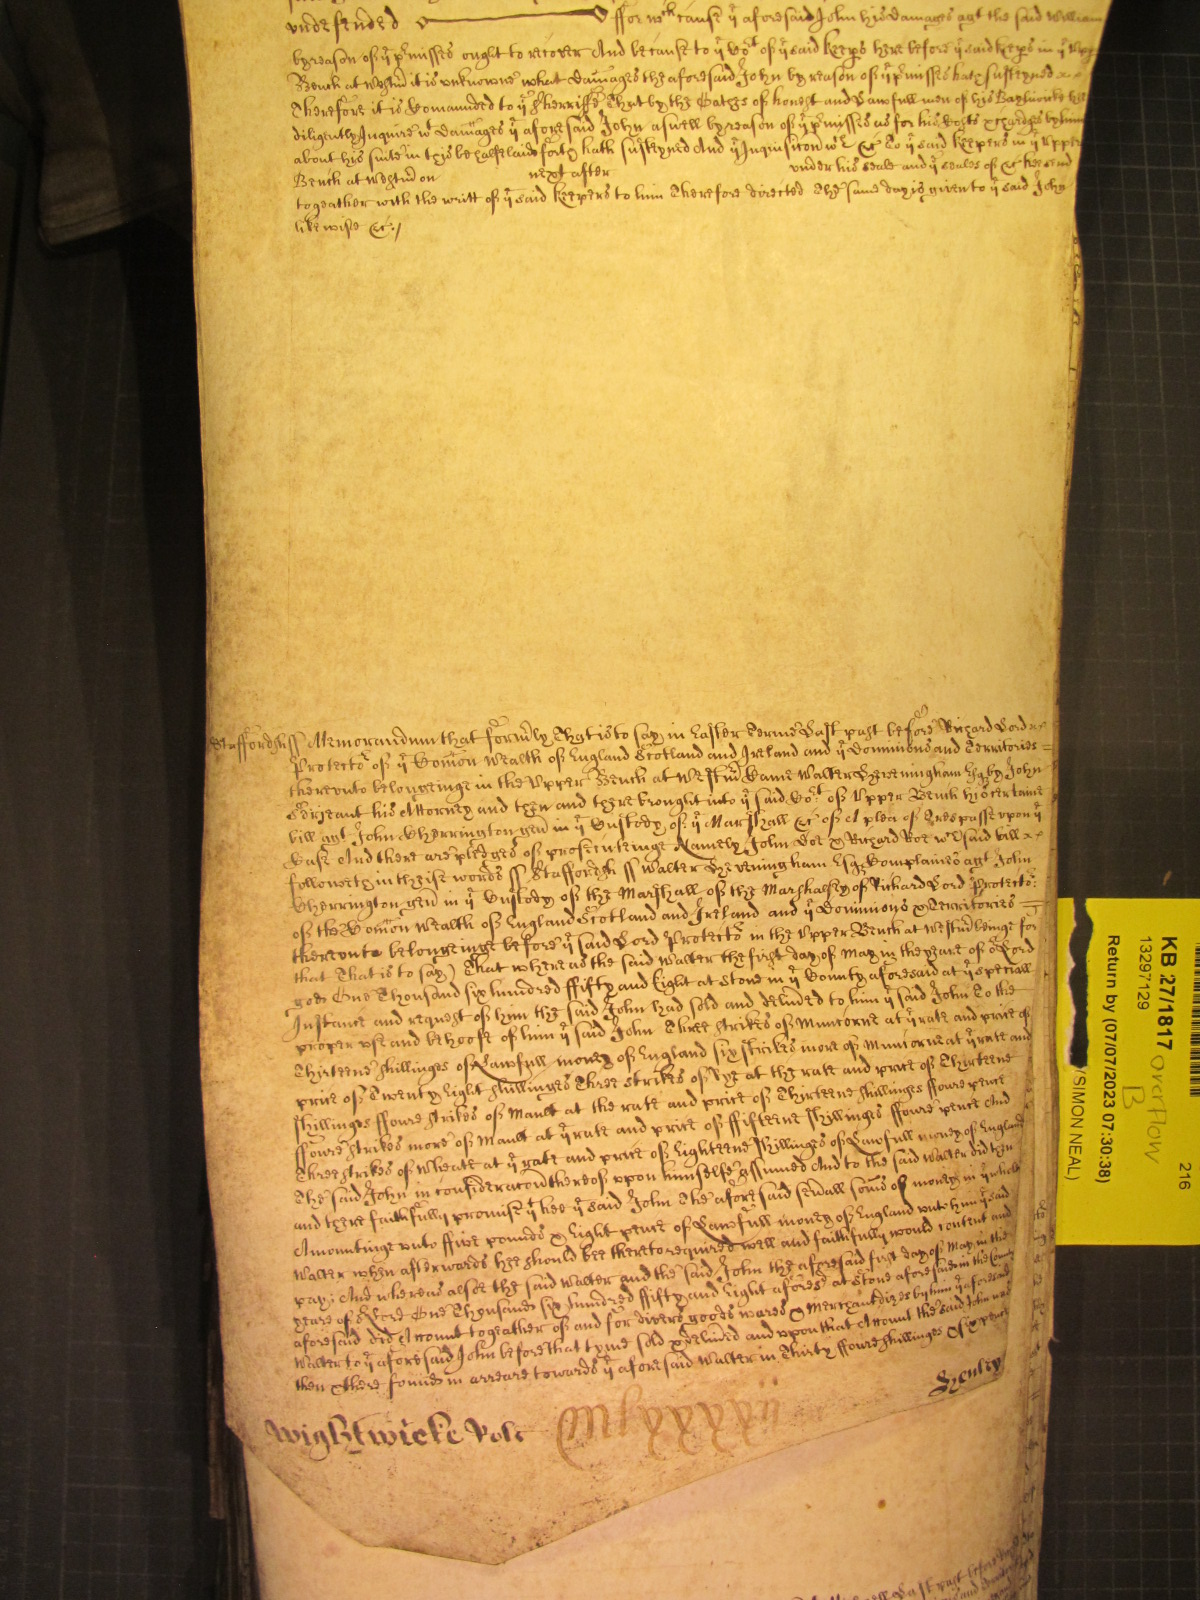 undefended ffor wch cause ye aforesaid John his damages agt the said William
by reason of ye p'misses ought to recover And because to ye Cort of ye said Keeps here before ye said Keeps in ye Upp
Bench at Westm it is unknowne what damages the aforesaid John by reason of ye p'misses hath susteyned
Therefore it is Comaunded to ye Sherriffe That by the Oathes of honest and Lawfull men of his Bayliwicke hee
diligently Inquire wt damages ye aforesaid John aswell by reason of ye p'misses as for his Costs & chardges by him
about his suite in this behalfe laid forth hath susteyned And ye Inquisicon wch &c To ye said Keepers in ye Upper
Bench at Westm on next after under his seale and ye seales of &c hee send
togeather with the writt of ye said Keepers to him Therefore directed The same day is given to ye said John
likewise &c/
Staffordsh ss Memorandum that form'ly That is to say in Easter Terme Last past before Richard Lord
Protector of ye Comon wealth of England Scotland and Ireland and ye Dominions and Territories
thereunto belongeinge in the Upper Bench at Westm Came Walter Heveningham Esq by John
Serjeant his Attorney and then and there brought into ye said Cort of Upper Bench his certaine
bill agt John Cherrington gen in ye Custody of ye Marshall &c of A plea of Trespasse upon ye
Case And there are pledges of prosecuteinge Namely John Doe & Richard Roe wch said bill
followeth in theise words ss Staffordsh ss Walter Heveningham Esq Complaines agt John
Cherrington gen in ye Custody of the Marshall of the Marshalsey of Richard Lord Protector
of the Comon wealth of England Scotland and Ireland and ye Dominions & Territories
thereunto belongeinge before ye said Lord Protector in the Upper Bench at Westm beinge for
that That is to say That whereas the said Walter the first day of May in the yeare of or Lord
god One Thousand six hundred ffifty and Eight at Stone in ye County aforesaid at ye speciall
Instance and request of him the said John had sold and deliued to him ye said John To the
proper use and behoofe of him ye said John Three strikes of Muncorne at ye rate and price of
Thirteene shillinges of Lawfull money of England six strikes more of Muncorne at ye rate and
price of Twenty Eight shillinges Three strikes of Rye at the rate and price of Thirteene
shillinges ffoure strikes of Mault at the rate and price of Thirteene shillinges ffoure pence
ffoure strikes more of Mault at ye rate and price of ffifteene shillinges ffoure pence And
Three strikes of Wheate at ye rate and price of Eighteene shillinges of Lawfull money of England
The said John in consideracon thereof upon himselfe assumed And to the said Walter did then
and there faithfully promise yt hee ye said John The aforesaid sevall somes of money in ye whole
Amountinge unto ffive pounds & Eight pence of Lawfull money of England unto him ye said
Walter when afterwards hee should bee thereto required well and faithfully would content and
pay; And whereas alsoe the said Walter and the said John the aforesaid first day of May in the
yeare of or Lord One Thousand six hundred ffifty and Eight aforesd at Stone aforesaid in the County
aforesaid did Account togeather of and for divers goods wares & Merchandizes by him ye aforesaid
Walter to ye aforesaid John before that tyme sold & deliued and upon that Account the said John was
then & there found in arreare towards ye aforesaid Walter in Thirty ffoure shillinges & six pence
Henley
Wightwicke Rolt
KB 27/1817 overflow B
13297129
216
Return by (07/07/2023 07:30:38)
/SIMON NEAL)